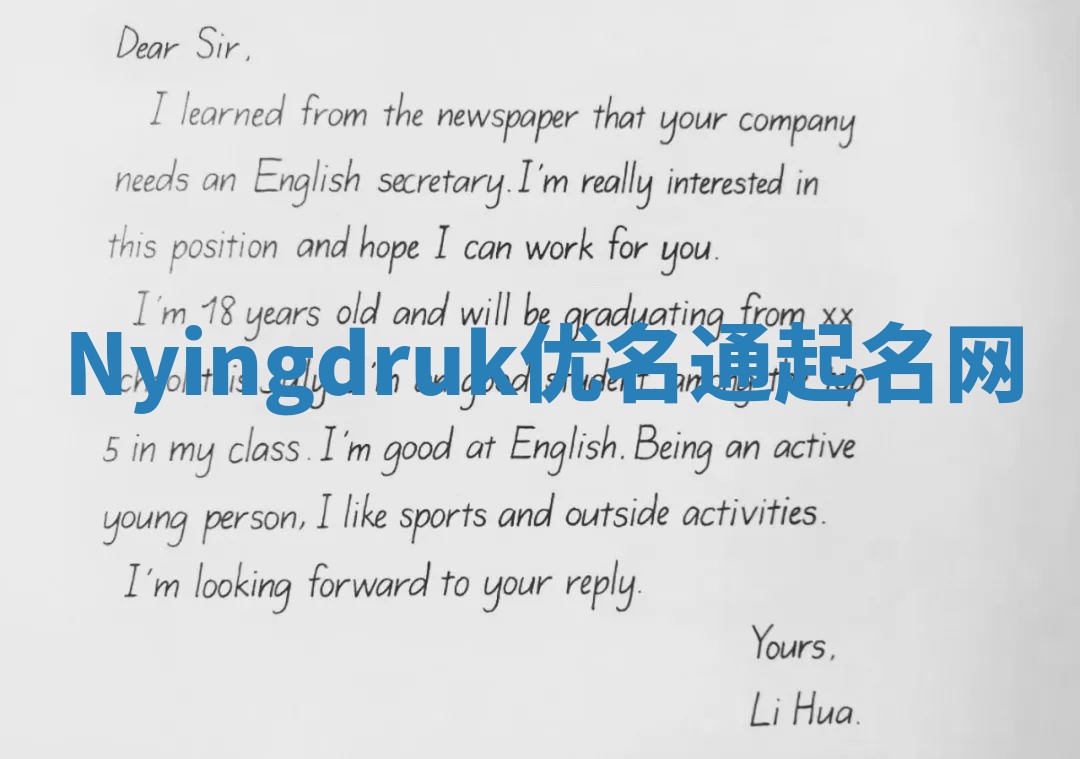 Dear Sir,
I learned from the newspaper that your company
needs an English secretary. I'm really interested in
this position and hope I can work for you.
I'm 18 years old and will be graduating from xx
Nyingdruk优名通起名网
5 in my class. I'm good at English. Being an active
young person, I like sports and outside activities.
I'm looking forward to your reply.
Yours,
Li Hua.